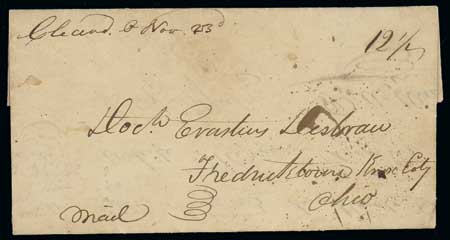 Cleavd. O Nov. 23d
12 1/2
Doctr Erastus
Fredricktown Knox Coty
Ohio
Mail